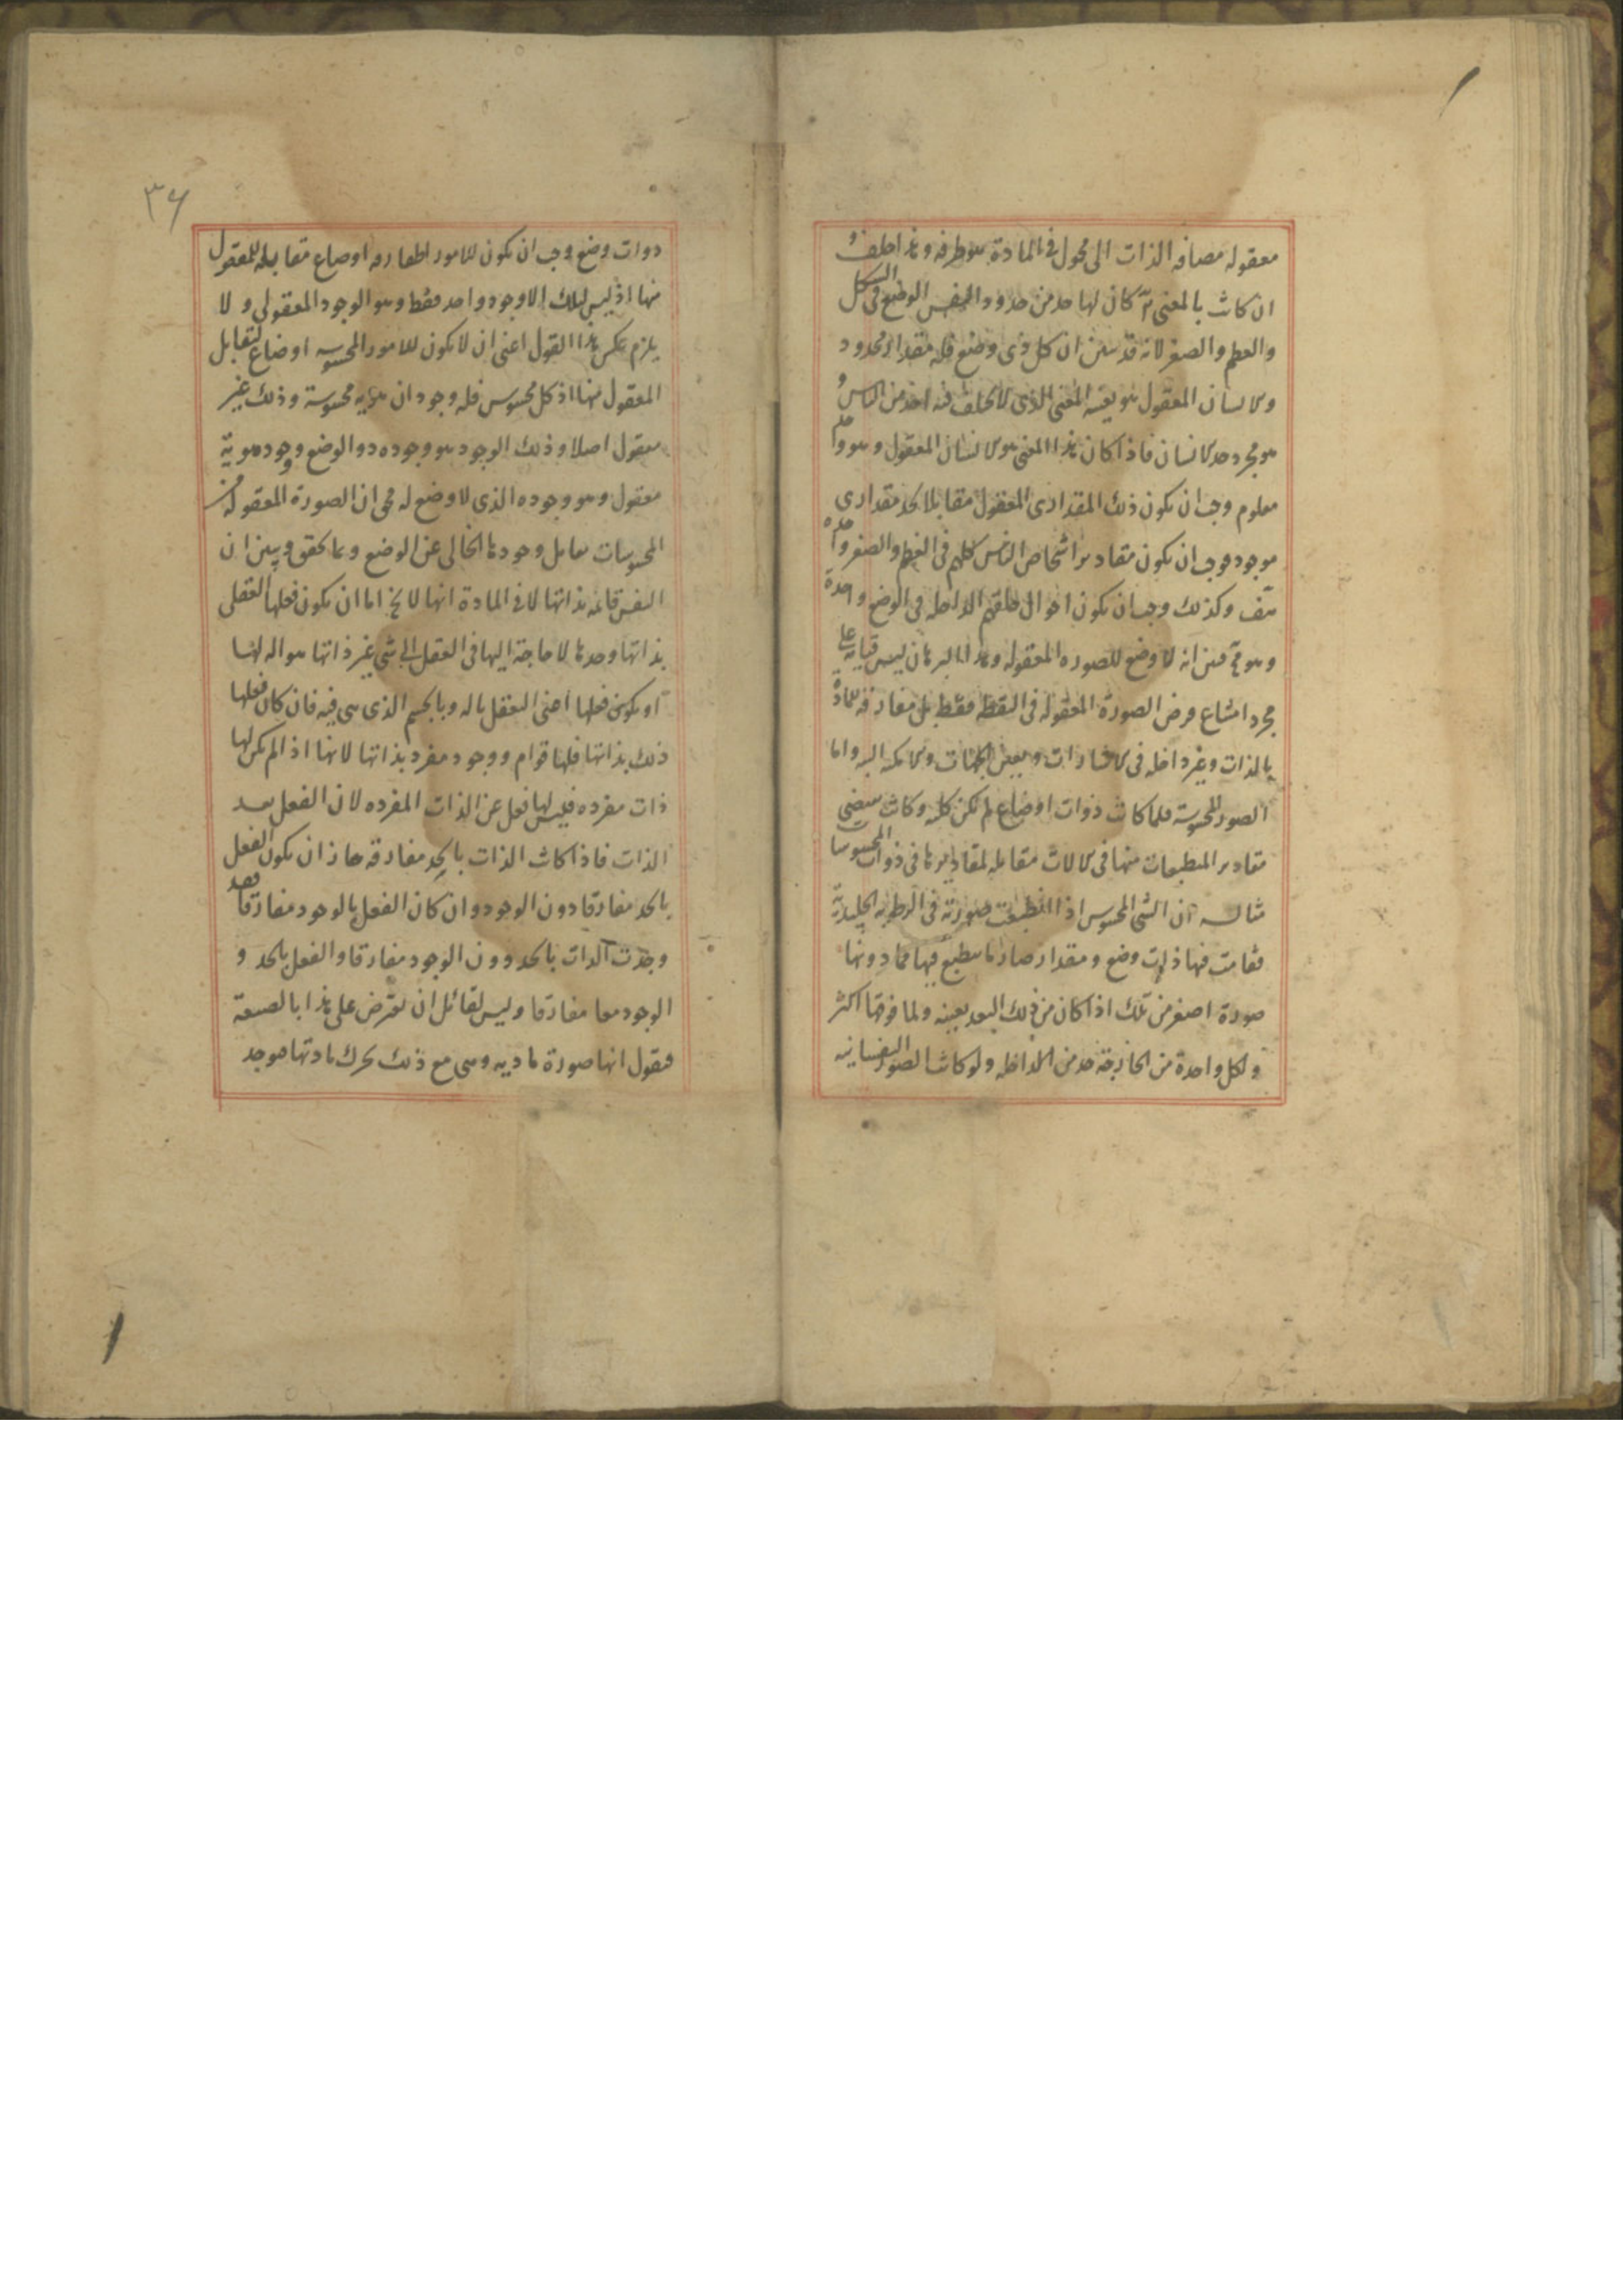 معقوله مضافه الذات الى محمول فى المادة هو طرفه
ان كانت بالمعنى كان لها حد من حدود النفس الوضع فى الشكل
والعظم والصغر لانه قد تبين ان كل ذى وضع فله مقدار محدود
ولانسان المعقول هو بعينه المعنى الذى لا يختلف فيه احد من الناس و
هو مجرد حد الانسان فاذا كان هذا المعنى هو الانسان المعقول وهو
معلوم وجب ان يكون ذلك المقدارى المعقول مقابلا لحد مقدارى
موجود فوجب ان يكون مقادير اشخاص الناس كلهم فى العظم والصغر واحده
هف وكذلك وجب ان يكون احوال خلقهم الداخله فى الوضع واحدة
وهو مح فبين انه لا وضع للصوره المعقوله وهذا البرهان ليس قياسه على
مجرد امتناع فرض الصورة المعقوله فى النقطه فقط بل مفارقه للمادة
بالذات وغير داخله فى الاشارات وبعض الجهات والامكنه البته واما
الصور المحسوسة فلما كانت ذوات اوضاع لم تكن كليه وكانت تقتضى
مقادير المنطبعات منها فى الالات مقابله لمقاديرها فى ذوات المحسوسات
مثاله ان الشى المحسوس اذا انطبعت صورته فى الرطوبه الجليدية
فقامت فيها ذات وضع ومقدار صار ما ينطبع فيها مما دونها
صورة اصغر من تلك اذا كان من ذلك البعد بعينه ولما فوقها اكثر
ولكل واحدة من الخارجة حد من الداخله ولو كانت الصور النفسانيه
٣٦
ذوات وضع وجب ان يكون للامور الخارجه اوضاع مقابله للمعقول
منها اذ ليس لتلك الا وجود واحد فقط وهو الوجود المعقولى ولا
يلزم عكس هذا القول اعنى ان لا يكون للامور المحسوسه اوضاع لتقابل
المعقول منها اذ كل محسوس فله وجودان هويه محسوسة وذلك غير
معقول اصلا وذلك الوجود هو وجوده ذو الوضع ووجود هوية
معقول وهو وجوده الذى لا وضع له فى ان الصورة المعقوله من
المحسوسات تقابل وجودها الخالى عن الوضع ومما يحقق ويبين ان
النفس قائمه بذاتها لا فى المادة انها لا يخ اما ان يكون فعلها العقلى
بذاتها وحدها لا حاجة اليها فى العقل الى شى غير ذاتها هو اله لها
او يكون فعلها اعنى التعقل باله وبالجسم الذى هى فيه فان كان فعلها
ذلك بذاتها فلها قوام ووجود مفرد بذاتها لانها اذا لم يكن لها
ذات مفرده فليس لها فعل عن الذات المفرده لان الفعل بعد
الذات فاذا كانت الذات بالحد مفارقه جاز ان يكون الفعل
بالحد مفارقا دون الوجود وان كان الفعل بالوجود مفارقا فقد
وجدت الذات بالحد دون الوجود مفارقا والفعل بالحد و
الوجود معا مفارقا وليس لقائل ان يعترض على هذا بالصيغة
فيقول انها صورة ماديه وهى مع ذلك تحرك مادتها فيوجد